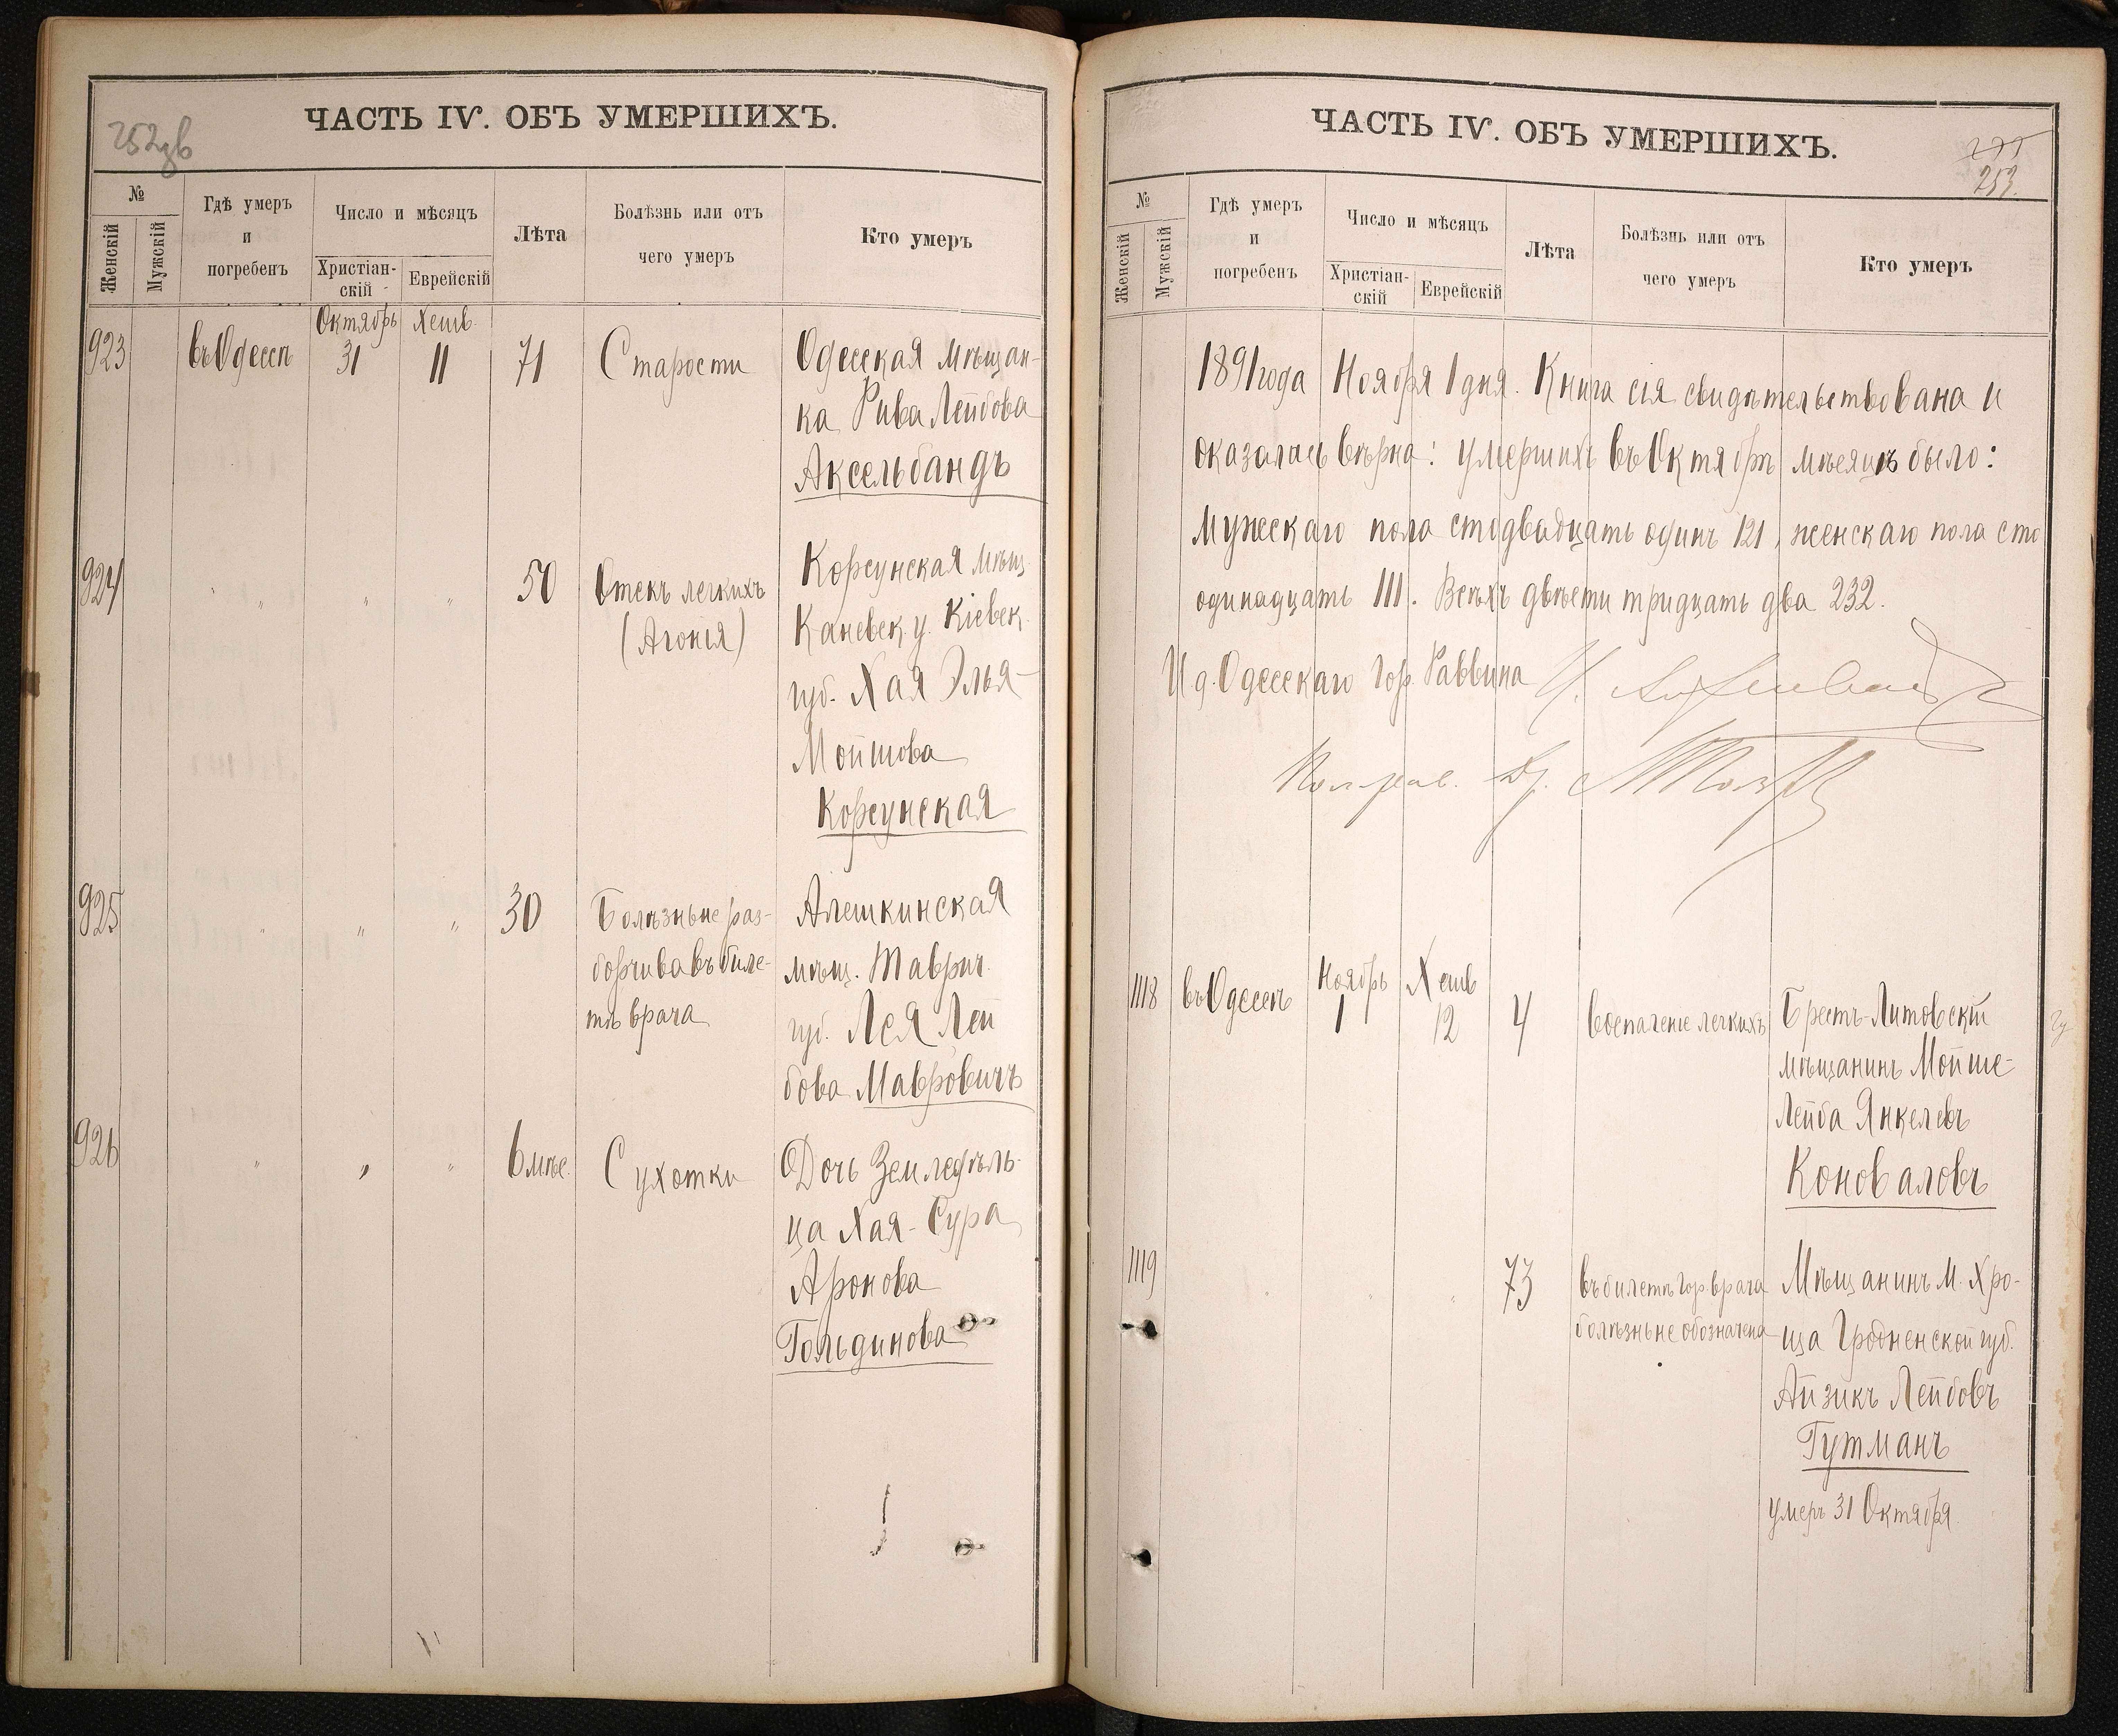 ЧАСТЬ IV. ОБЪ УМЕРШИХЪ.
№
Женскій
Мужскій
Гдѣ умеръ
и
погребенъ
Число и мѣсяцъ
Христіан-
скій
Еврейскій
Лѣта
Болѣзнь или отъ
чего умеръ
Кто умеръ
Октябрь Хешв.
923 въ Одессѣ 31 11 71 Старости Одесская мѣщан-
ка Рива Лейбова
Аксельбандъ
924 " " " " 50 Отекъ легкихъ Корсунская мѣщ.
(Агонія) Каневск. у. Кіевск.
губ. Хая Элья-
Мойшова
Корсунская
925 " " " 30 Болѣзнь не раз- Алешкинская
борчива въ биле- мѣщ. Таврич.
тѣ врача губ. Лея Лей
бова Мавровичъ
926 " " " 6 мѣс. Сухотки Дочь Земледѣль-
ца Хая-Сура
Аронова
Гольдинова
ЧАСТЬ IV. ОБЪ УМЕРШИХЪ.
253.
№
Женскій
Мужскій
Гдѣ умеръ
и
погребенъ
Число и мѣсяцъ
Христіан-
скій
Еврейскій
Лѣта
Болѣзнь или отъ
чего умеръ
Кто умеръ
1891 года Ноября 1 дня. Книга сія свидѣтельствована и
оказалась вѣрна: умершихъ въ Октябрѣ мѣсяцѣ было:
Мужескаго пола сто двадцать одинъ 121, женскаго пола сто
одинадцать 111. Всѣхъ двѣсти тридцать два 232.
И д. Одесскаго Гор. Раввина
Ноябрь Хешв
1118 въ Одессѣ 1 12 4 Воспаленіе легкихъ Брестъ-Литовскій
мѣщанинъ Мойше-
Лейба Янкелевъ
Коноваловъ
1119 " " 73 въ билетѣ Гор. врача Мѣщанинъ М. Хро-
болѣзнь не обозначена ща Гродненской губ.
Айзикъ Лейбовъ
Гутманъ
умеръ 31 Октября.